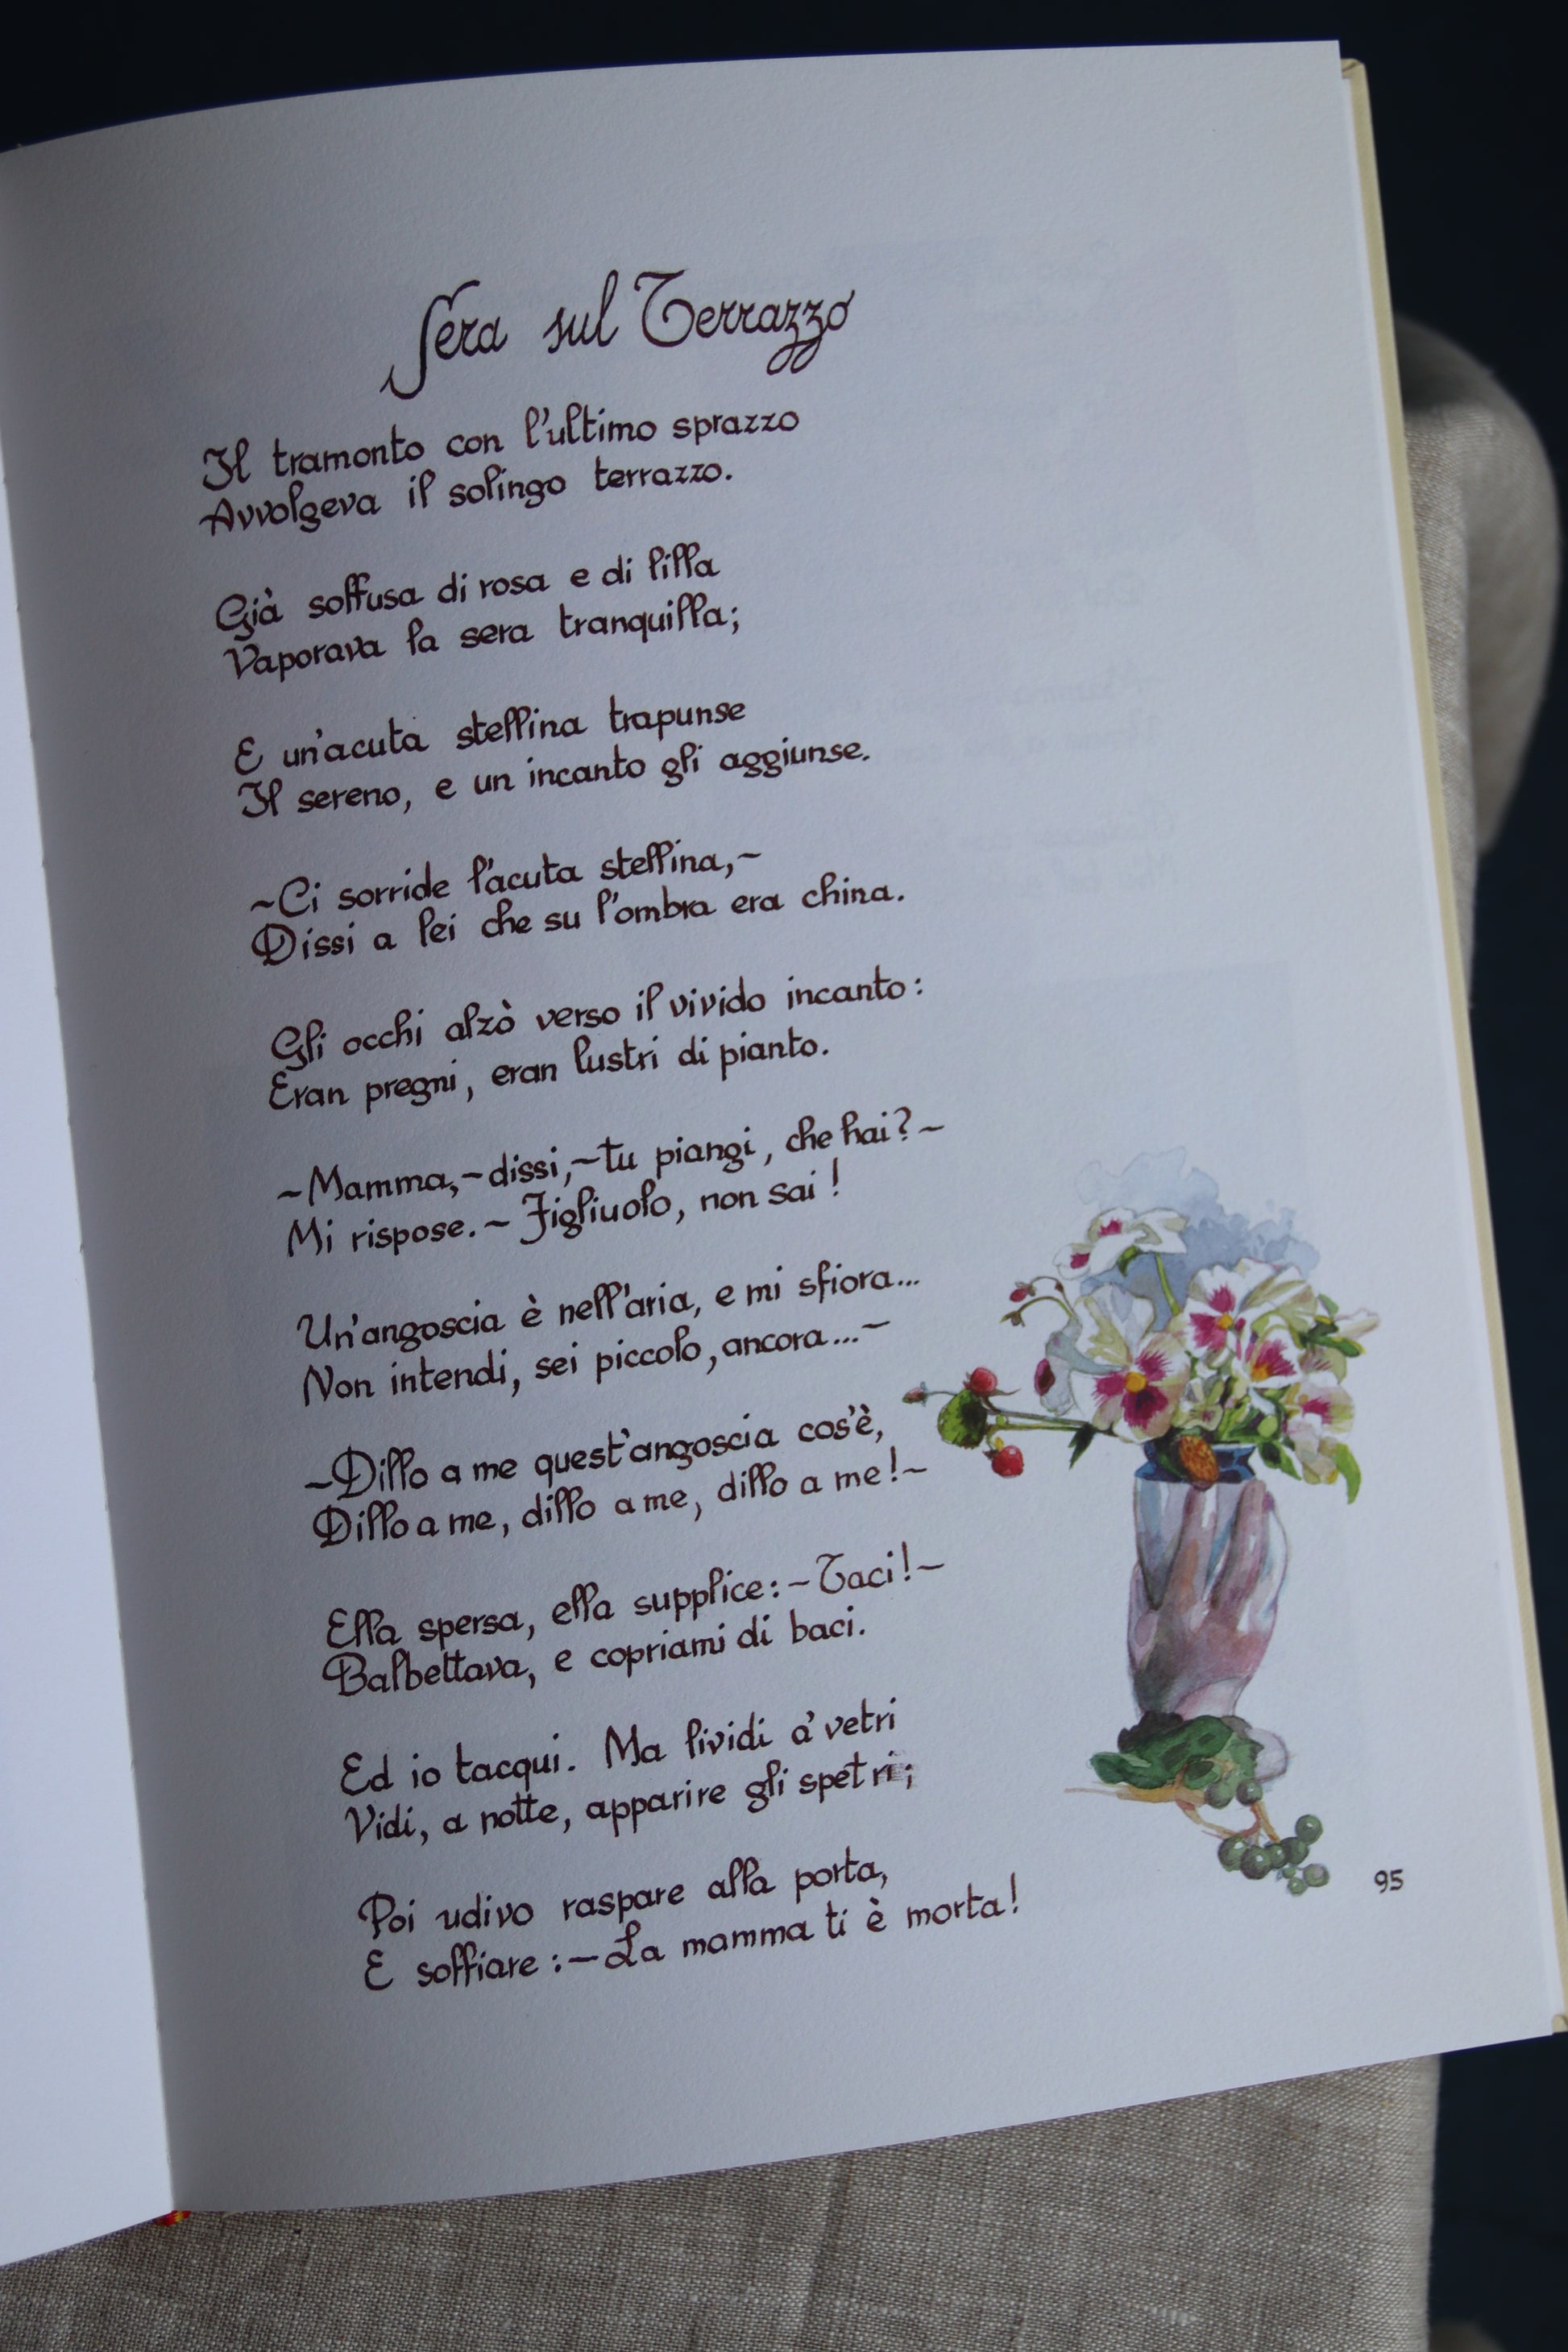 Sera sul Terrazzo
Il tramonto con l'ultimo sprazzo
Avvolgeva il solingo terrazzo.
Già soffusa di rosa e di lilla
Vaporava la sera tranquilla;
E un'acuta stellina trapunse
Il sereno, e un incanto gli aggiunse.
~Ci sorride l'acuta stellina,~
Dissi a lei che su l'ombra era china.
Gli occhi alzò verso il vivido incanto:
Eran pregni, eran lustri di pianto.
~Mamma,~dissi,~tu piangi, che hai?~
Mi rispose.~ Figliuolo, non sai!
Un'angoscia è nell'aria, e mi sfiora...
Non intendi, sei piccolo, ancora...~
~Dillo a me quest'angoscia cos'è,
Dillo a me, dillo a me, dillo a me!~
Ella spersa, ella supplice:~Taci!~
Balbettava, e copriami di baci.
Ed io tacqui. Ma lividi a' vetri
Vidi, a notte, apparire gli spetri;
Poi udivo raspare alla porta,
E soffiare:~La mamma ti è morta!
95